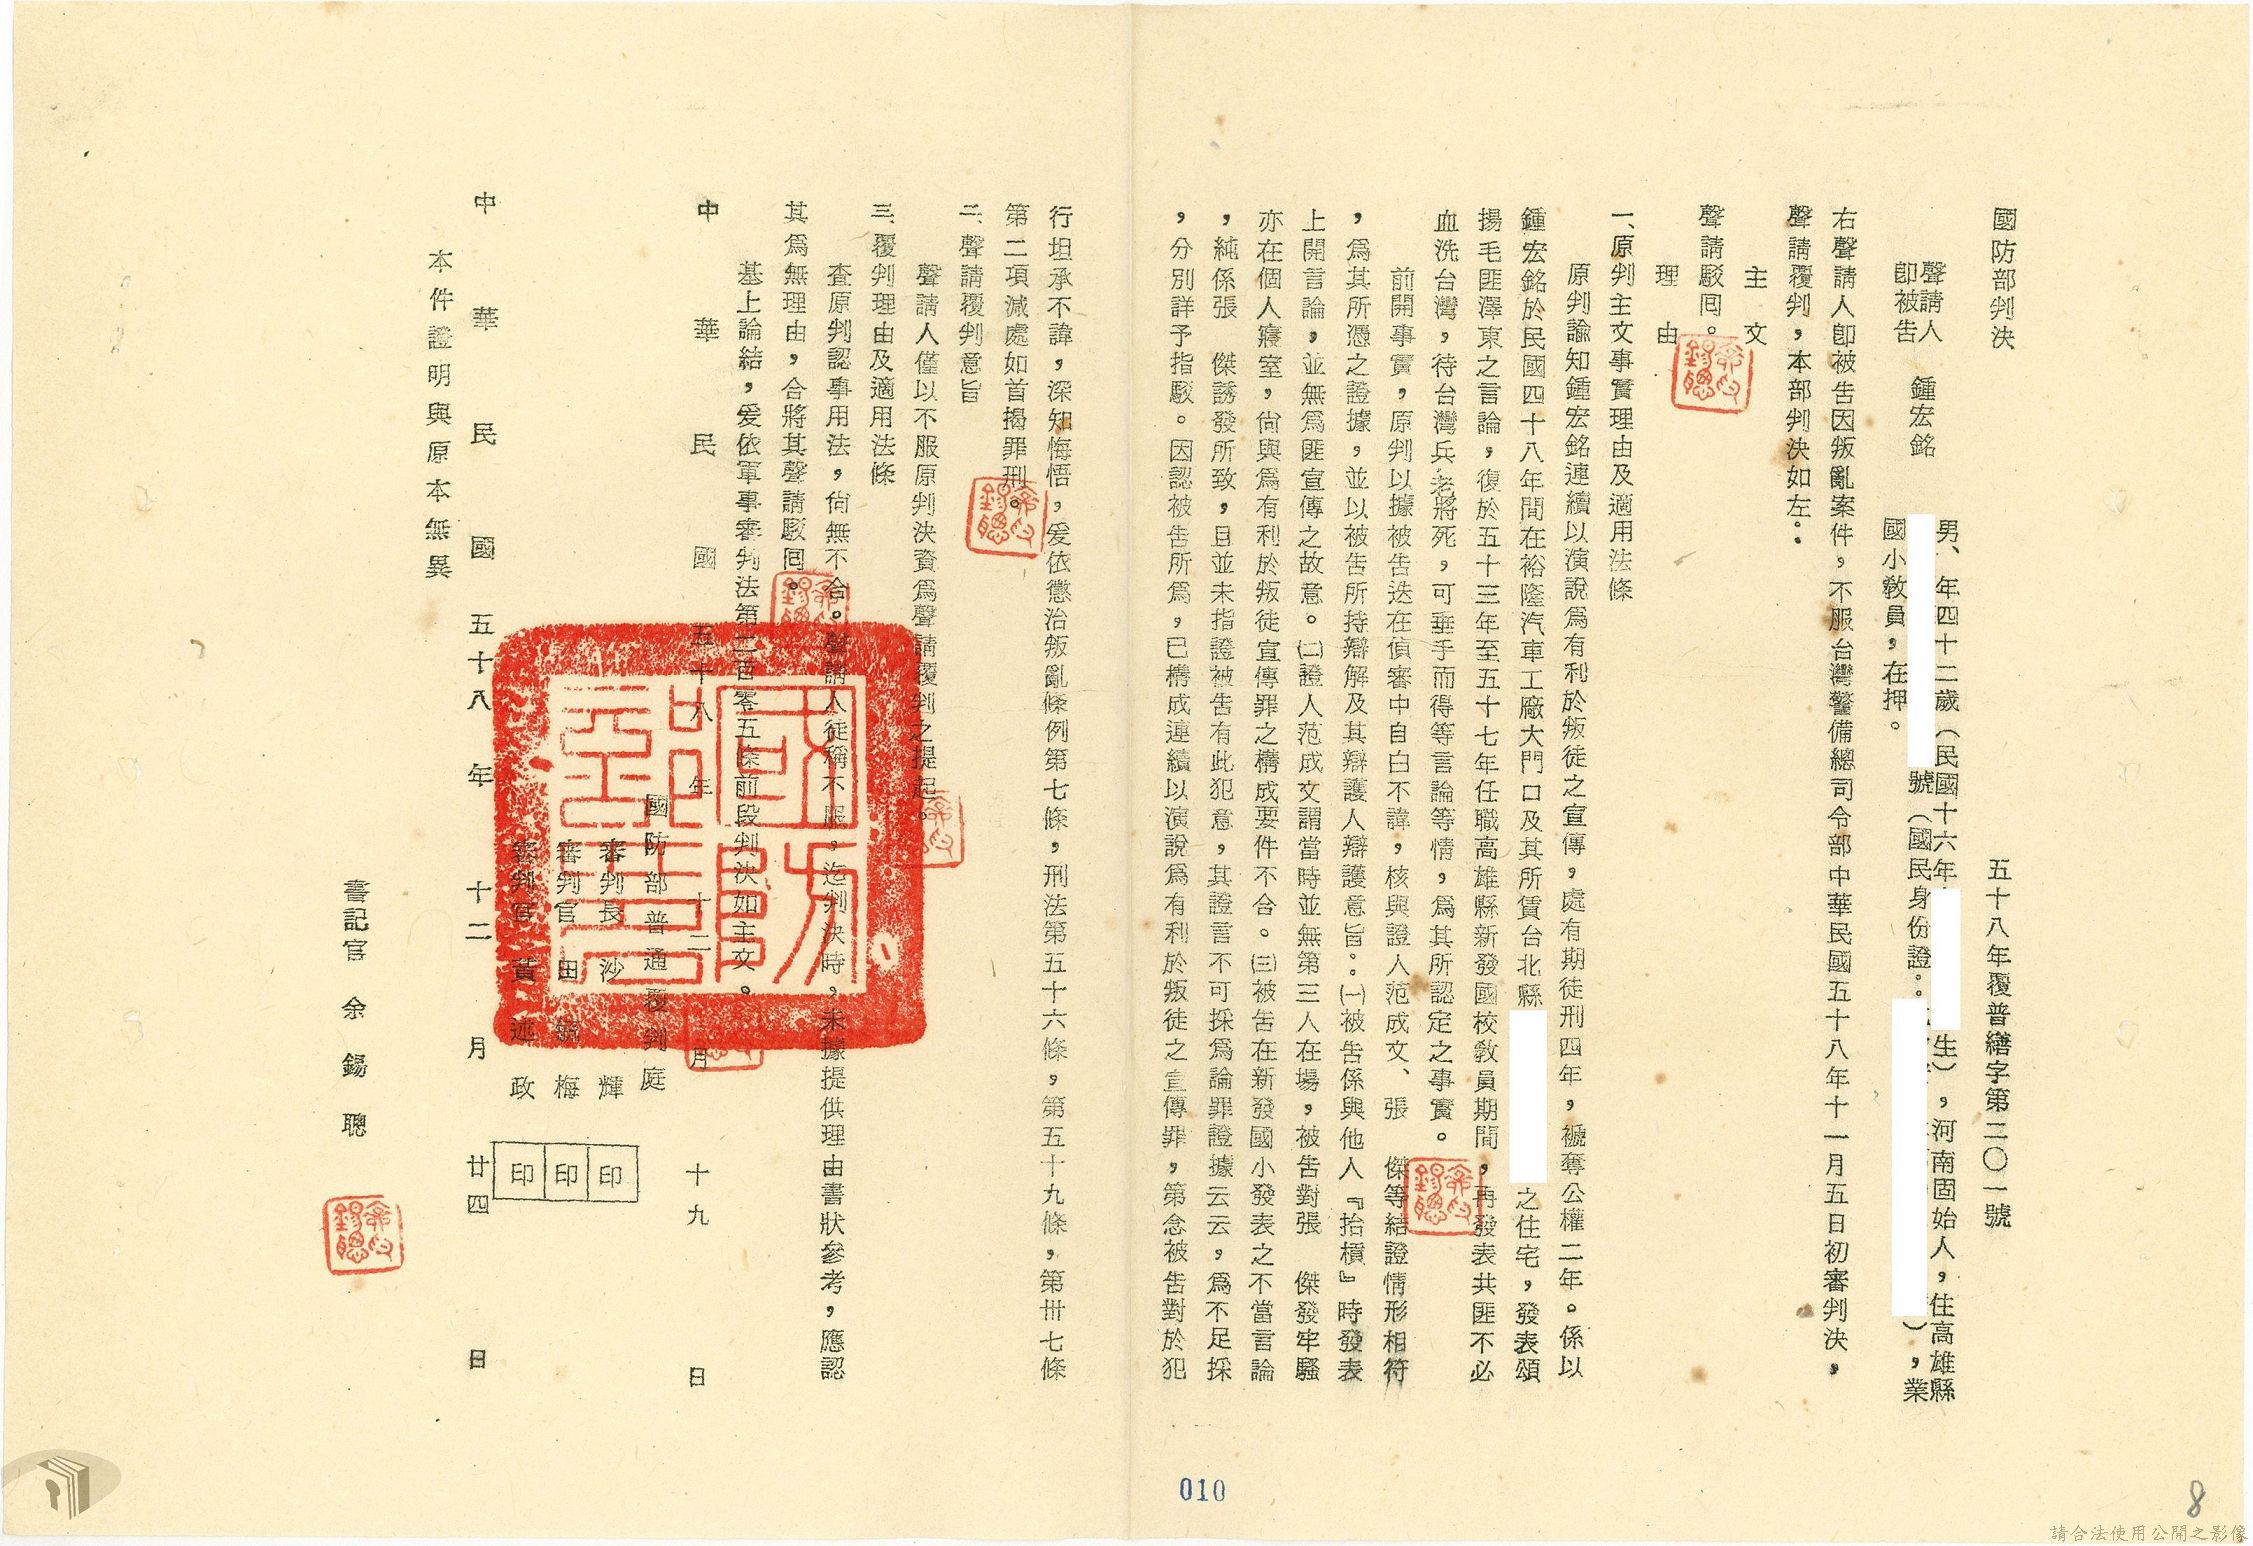 國防部判決
五十八年覆普繕字第二〇一號
聲請人
即被告 鍾宏銘 男、年四十二歲（民國十六年 生），河南固始人，住高雄縣
號（國民身份證： ），業
國小教員，在押。
右聲請人即被告因叛亂案件，不服台灣警備總司令部中華民國五十八年十一月五日初審判決，
聲請覆判，本部判決如左：
主文
聲請駁回。
理由
一、原判主文事實理由及適用法條
原判諭知鍾宏銘連續以演說為有利於叛徒之宣傳，處有期徒刑四年，褫奪公權二年。係以
鍾宏銘於民國四十八年間在裕隆汽車工廠大門口及其所賃台北縣 之住宅，發表頌
揚毛匪澤東之言論，復於五十三年至五十七年任職高雄縣新發國校教員期間，再發表共匪不必
血洗台灣，待台灣兵老將死，可垂手而得等言論等情，為其所認定之事實。
前開事實，原判以據被告迭在偵審中自白不諱，核與證人范成文、張 傑等結證情形相符
，為其所憑之證據，並以被告所持辯解及其辯護人辯護意旨：㈠被告係與他人『抬槓』時發表
上開言論，並無為匪宣傳之故意。㈡證人范成文謂當時並無第三人在場，被告對張 傑發牢騷
亦在個人寢室，尚與為有利於叛徒宣傳罪之構成要件不合。㈢被告在新發國小發表之不當言論
，純係張 傑誘發所致，且並未指證被告有此犯意，其證言不可採為論罪證據云云，為不足採
，分別詳予指駁。因認被告所為，已構成連續以演說為有利於叛徒之宣傳罪，第念被告對於犯
行坦承不諱，深知悔悟，爰依懲治叛亂條例第七條，刑法第五十六條，第五十九條，第卅七條
第二項減處如首揭罪刑。
二、聲請覆判意旨
聲請人僅以不服原判決資為聲請覆判之提起。
三、覆判理由及適用法條
查原判認事用法，尚無不合。聲請人徒稱不服，迄判決時，未據提供理由書狀參考，應認
其為無理由，合將其聲請駁回。
基上論結，爰依軍事審判法第二百零五條前段判決如主文。
中華民國五十八年十二月十九日
國防部普通覆判庭
審判長 沙 輝 印
審判官 田 毓 梅 印
審判官 黃 述 政 印
中華民國五十八年十二月廿四日
本件證明與原本無異
書記官 余錫聰
國防部印
余錫聰印
010
8
請合法使用公開之影像